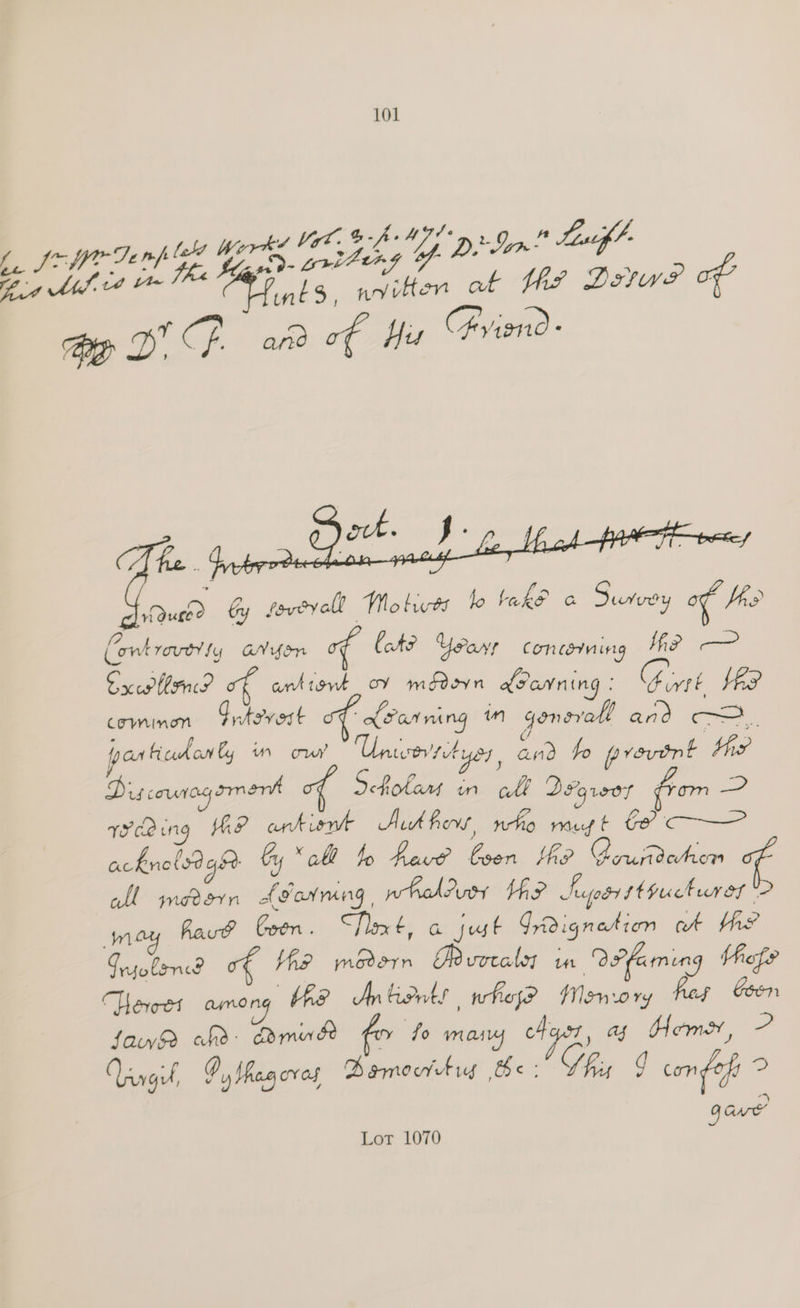 101
in Sr. Wm. Temples Works Vol. 3.
This is in The Hand-writing of Dr. Jon.n Swift.
Hints, written at the Desire of
Dr. F. and of His Friend.
Sect. 1.
The Introduction may be, that
induced by severall Motives to take a Survey of the
Controversy arisen of late Years concerning the
Excellence of antient or modern Learning: First the
common Interest of Learning in generall and
particularly in our Universityes, and to prevent the
Discouragement of Scholars in all Degrees from
reading the antient Authors, who must be
acknoledged by all to have been the Foundation of
all modern Learning, whatever the Superstructures
may have been. Next, a just Indignation at the
Insolence of the modern Advocates in Defaming those
Heroes among the Antients, whose Memory has been
sacred and admired for so many Ages, as Homer,
Virgil, Pythagoras Democritus &c: This I confess
gave
Lot 1070